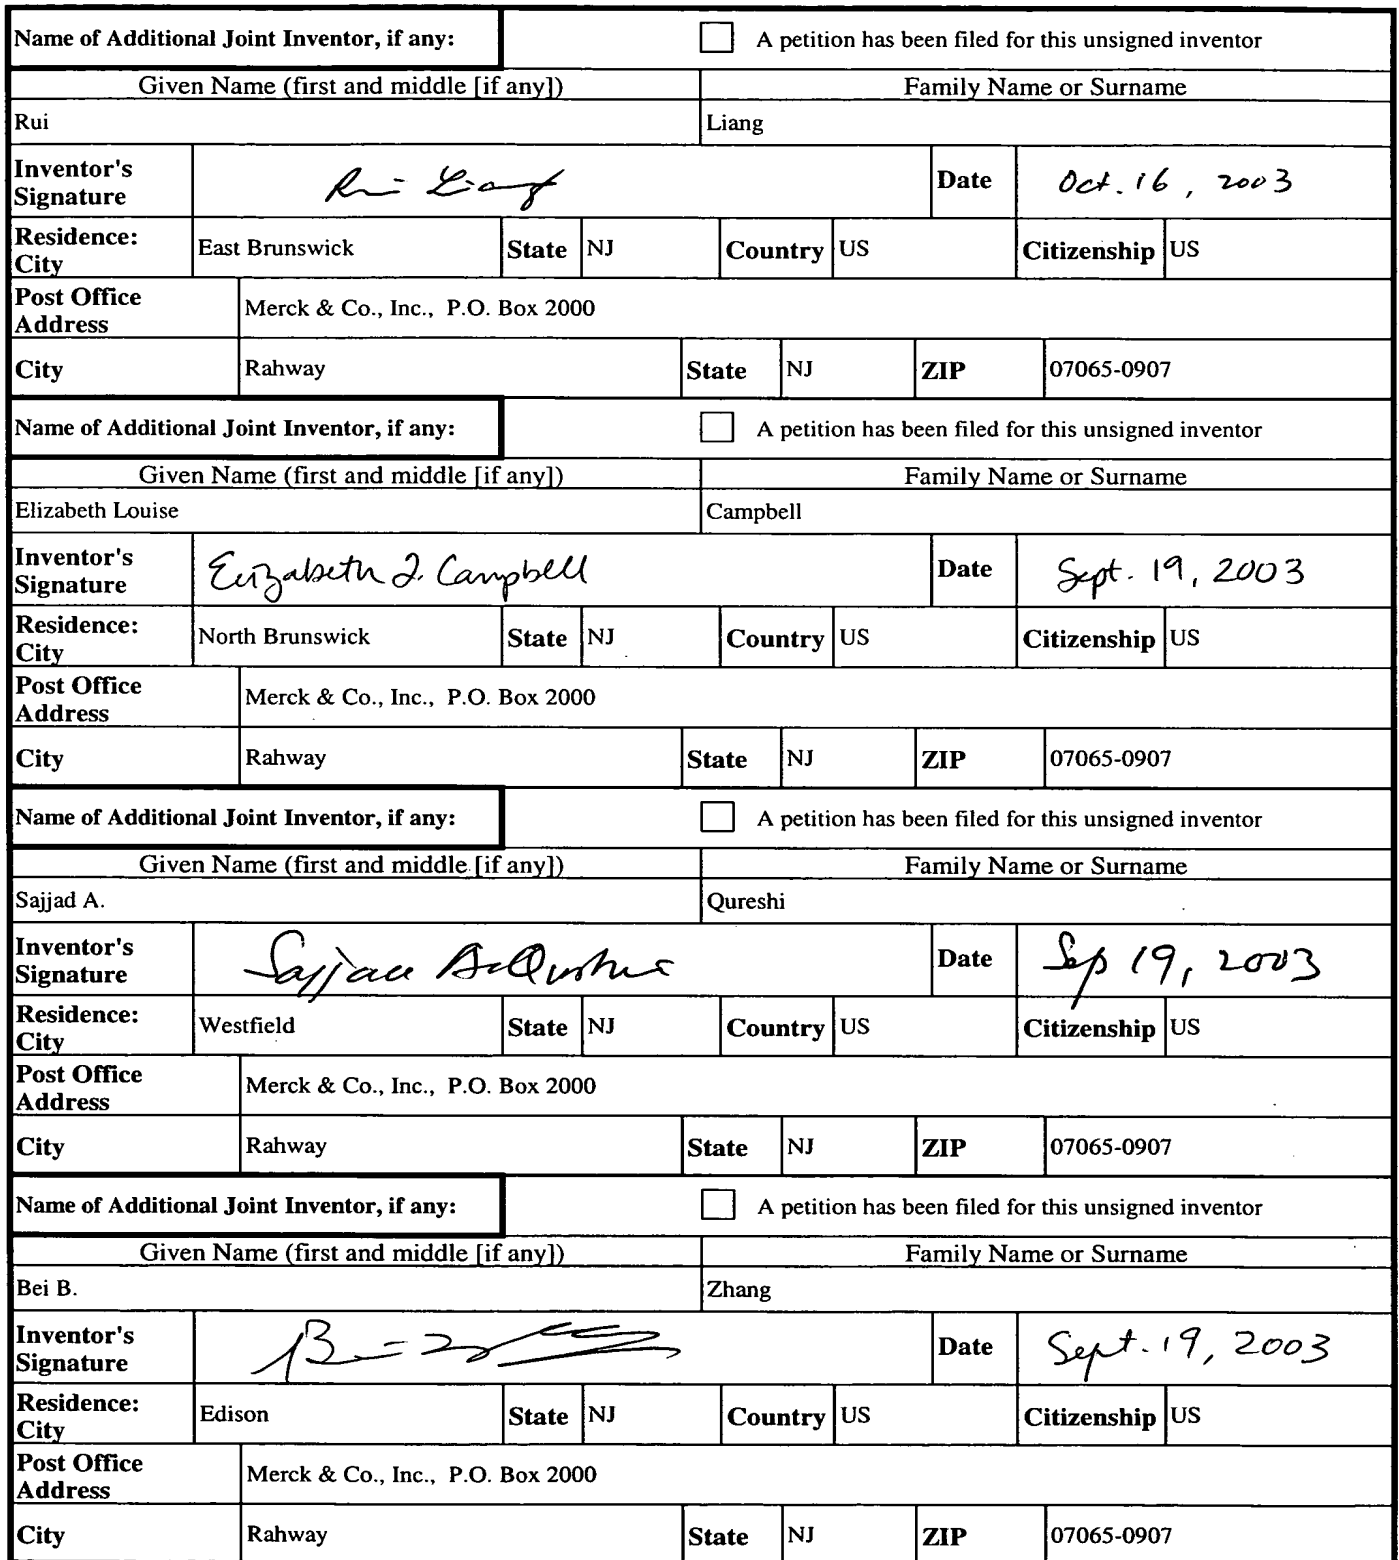 Name of Additional Joint Inventor, if any: A petition has been filed for this unsigned inventor
Given Name (first and middle [if any]) Family Name or Surname
Rui Liang
Inventor's Signature Rui Liang Date Oct. 16, 2003
Residence: City East Brunswick State NJ Country US Citizenship US
Post Office Address Merck & Co., Inc., P.O. Box 2000
City Rahway State NJ ZIP 07065-0907
Name of Additional Joint Inventor, if any: A petition has been filed for this unsigned inventor
Given Name (first and middle [if any]) Family Name or Surname
Elizabeth Louise Campbell
Inventor's Signature Elizabeth L. Campbell Date Sept. 19, 2003
Residence: City North Brunswick State NJ Country US Citizenship US
Post Office Address Merck & Co., Inc., P.O. Box 2000
City Rahway State NJ ZIP 07065-0907
Name of Additional Joint Inventor, if any: A petition has been filed for this unsigned inventor
Given Name (first and middle [if any]) Family Name or Surname
Sajjad A. Qureshi
Inventor's Signature Sajjad A. Qureshi Date Sep 19, 2003
Residence: City Westfield State NJ Country US Citizenship US
Post Office Address Merck & Co., Inc., P.O. Box 2000
City Rahway State NJ ZIP 07065-0907
Name of Additional Joint Inventor, if any: A petition has been filed for this unsigned inventor
Given Name (first and middle [if any]) Family Name or Surname
Bei B. Zhang
Inventor's Signature Date Sept. 19, 2003
Residence: City Edison State NJ Country US Citizenship US
Post Office Address Merck & Co., Inc., P.O. Box 2000
City Rahway State NJ ZIP 07065-0907